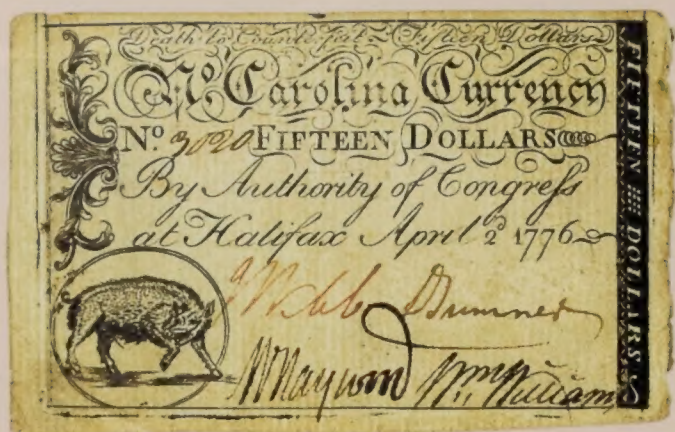 Death to Counterfeit Fifteen Dollars
No. Carolina Currency
No. 3020 FIFTEEN DOLLARS
By Authority of Congress
at Halifax April 2d 1776
J Webb D Sumner
W Haywood Wm Williams
FIFTEEN DOLLARS